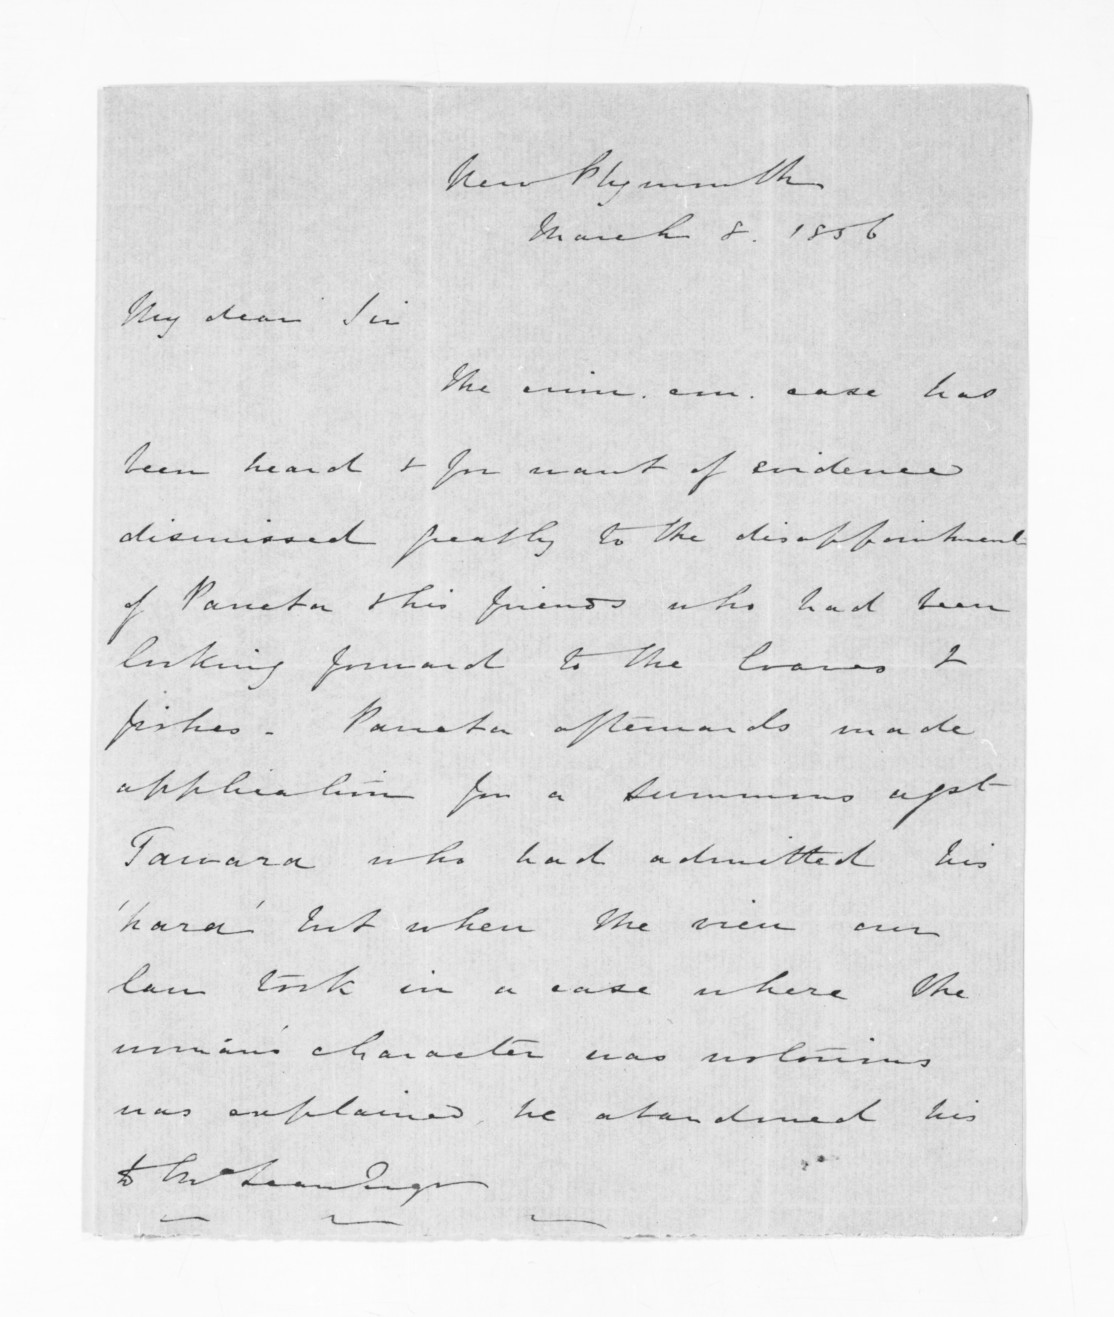 New Plymouth
March 8. 1856
My dear Sir
The crim. con. case has
been heard & for want of evidence
dismissed greatly to the disappointment
of Paneta & his friends who had been
looking forward to the loaves &
fishes - Paneta afterwards made
application for a summons agst
Tawara who had admitted his
'hara' but when the view our
law took in a case where the
woman's character was notorious
was explained, he abandoned his
D McLean Esqr